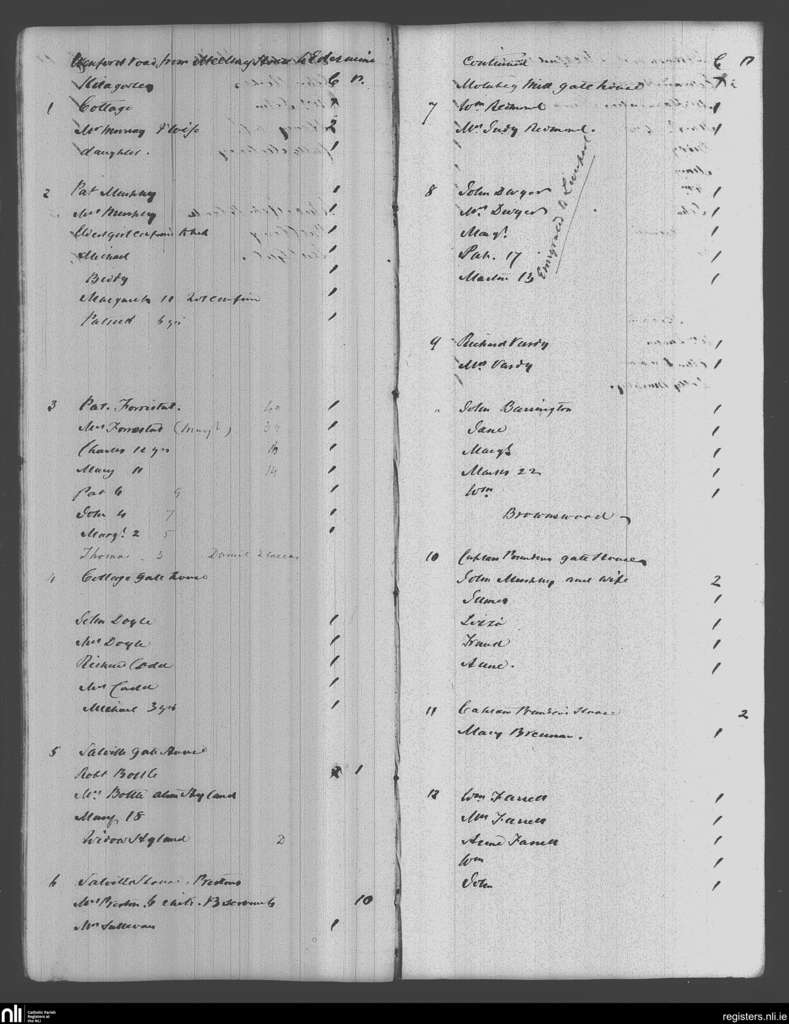 Wexford road from Meeting House to Edermine
Kilagorley C P.
1 Cottage
Mr Murray & Wife 2
daughter. 1
2 Pat Murphy 1
Mrs Murphy 1
Eldest girl 1
Michael 1
Biddy 1
Margaret 10 not confirm 1
Patrick 6 yrs 1
3 Pat. Forristal. 40 1
Mrs Forrestal (Margt) 34 1
Charles 12 yrs 1
Mary 11 14 1
Pat 6 9 1
John 4 7 1
Margt 2 5 1
Thomas 3 Daniel
4 Cottage Gate house
John Doyle 1
Mrs Doyle 1
Richard Codd 1
Mrs Codd 1
Michael 3 yrs 1
5 Salville Gate House
Robt Bottle 1
Mrs Bottle alias Hyland
Mary 18
Widow Hyland D
6 Salville House. Prestons
Mrs Preston. 6 chil. 3 servants 10
Mrs Sullivan 1
Continued C P
Mill gate house
7 Wm Redmond 1
Mrs Judy Redmond. 1
8 John Dwyer 1
Mrs Dwyer 1
Margt. 1
Pat. 17 1
Martin 13 1
Emigrated to Liverpool
9 Richard Vardy 1
Mrs Vardy 1
" John Barrington 1
Jane 1
Margt 1
Moses 22 1
Wm 1
Brownswood
10 Captain gate House
John Murphy and wife 2
James 1
Lizzie 1
1
Anne. 1
11 Captain House 2
Mary Brennan. 1
12 Wm Farrell 1
Mrs Farrell 1
Anne Farrell 1
Wm 1
John 1
nli
Catholic Parish
Registers at
the NLI
registers.nli.ie